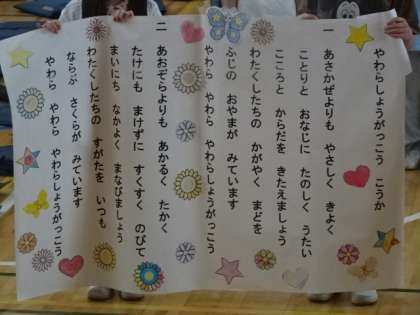 やわらしょうがっこう こうか
一 あさかぜよりも やさしく きよく
ことりと おなじに たのしく うたい
こころと からだを きたえましょう
わたくしたちの かがやく まどを
ふじの おやまが みています
やわら やわら やわらしょうがっこう
二 あおぞらよりも あかるく たかく
たけにも まけずに すくすく のびて
まいにち なかよく まなびましょう
わたくしたちの すがたを いつも
ならぶ さくらが みています
やわら やわら やわらしょうがっこう